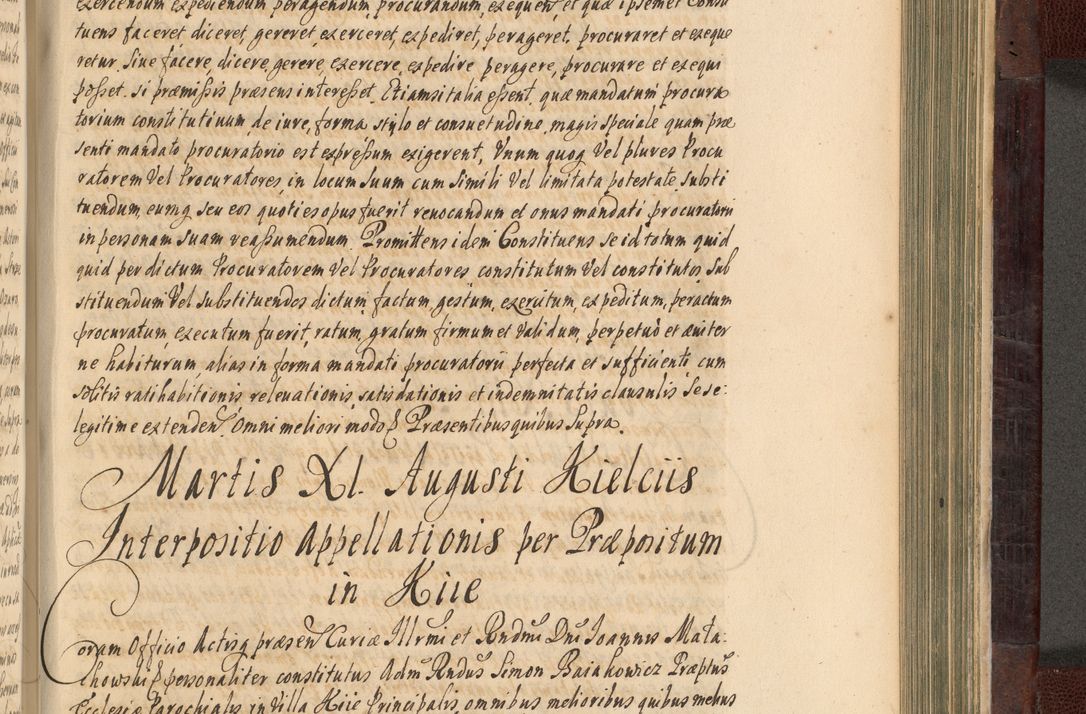 exercendum expediendum peragendum, procurandum, exequen, et quæ ipsemet Consti
tuens faceret diceret, gereret, exerceret, expediret, perageret, procuraret et exeque
retur. Siue facere, dicere, gerere, exercere, expedire, peragere, procurare et exequi
posset. si præmissis præsens interesset. Etiamsi talia essent, quæ mandatum procura
torium constitutiuum, de iure, forma stylo et consuetudine, magis speciale quam præ
senti mandato procuratorio est expressum exigerent, Vnum quoq Vel plures Procu
ratorem Vel Procuratores, in locum suum cum simili Vel limitata potestate, substi
tuendum, eumq seu eos quoties opus fuerit reuocandum et onus mandati procuratorii
in personam suam reassumendum. Promittens idem Constituens se id totum quid
quid per dictum Procuratorem Vel Procuratores constitutum Vel constitutos Sub
stituendum Vel substituendos dictum, factum, gestum, exercitum, expeditum, peractum
procuratum, executum fuerit, ratum, gratum firmum et Validum, perpetuo et æuiter
ne habiturum, alias in forma mandati procuratorii perfecta et sufficienti, cum
solitis ratihabitionis, releuationis, satisdationis et indemnitatis clausulis se se
legitime extenden. Omni meliori modo Præsentibus quibus Supra.
Martis XI. Augusti Kielciis
Interpositio Appellationis per Præpositum
in Kiie
Coram Officio Actisq præsen Curiæ Illrmi et Rndmi Dni Joannis Mała:
chowski personaliter constitutus Adm Rndus Simon Baiakowicz Præptus
Ecclesiæ Parochialis in Villa Kiie Principalis, omnibus melioribus quibus melius